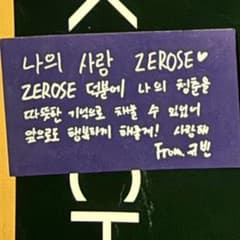 나의 사람 ZEROSE♥
ZEROSE 덕분에 나의 청춘을
따뜻한 기억으로 채울 수 있었어
앞으로도 행복하게 해줄게! 사랑해
From. 규빈